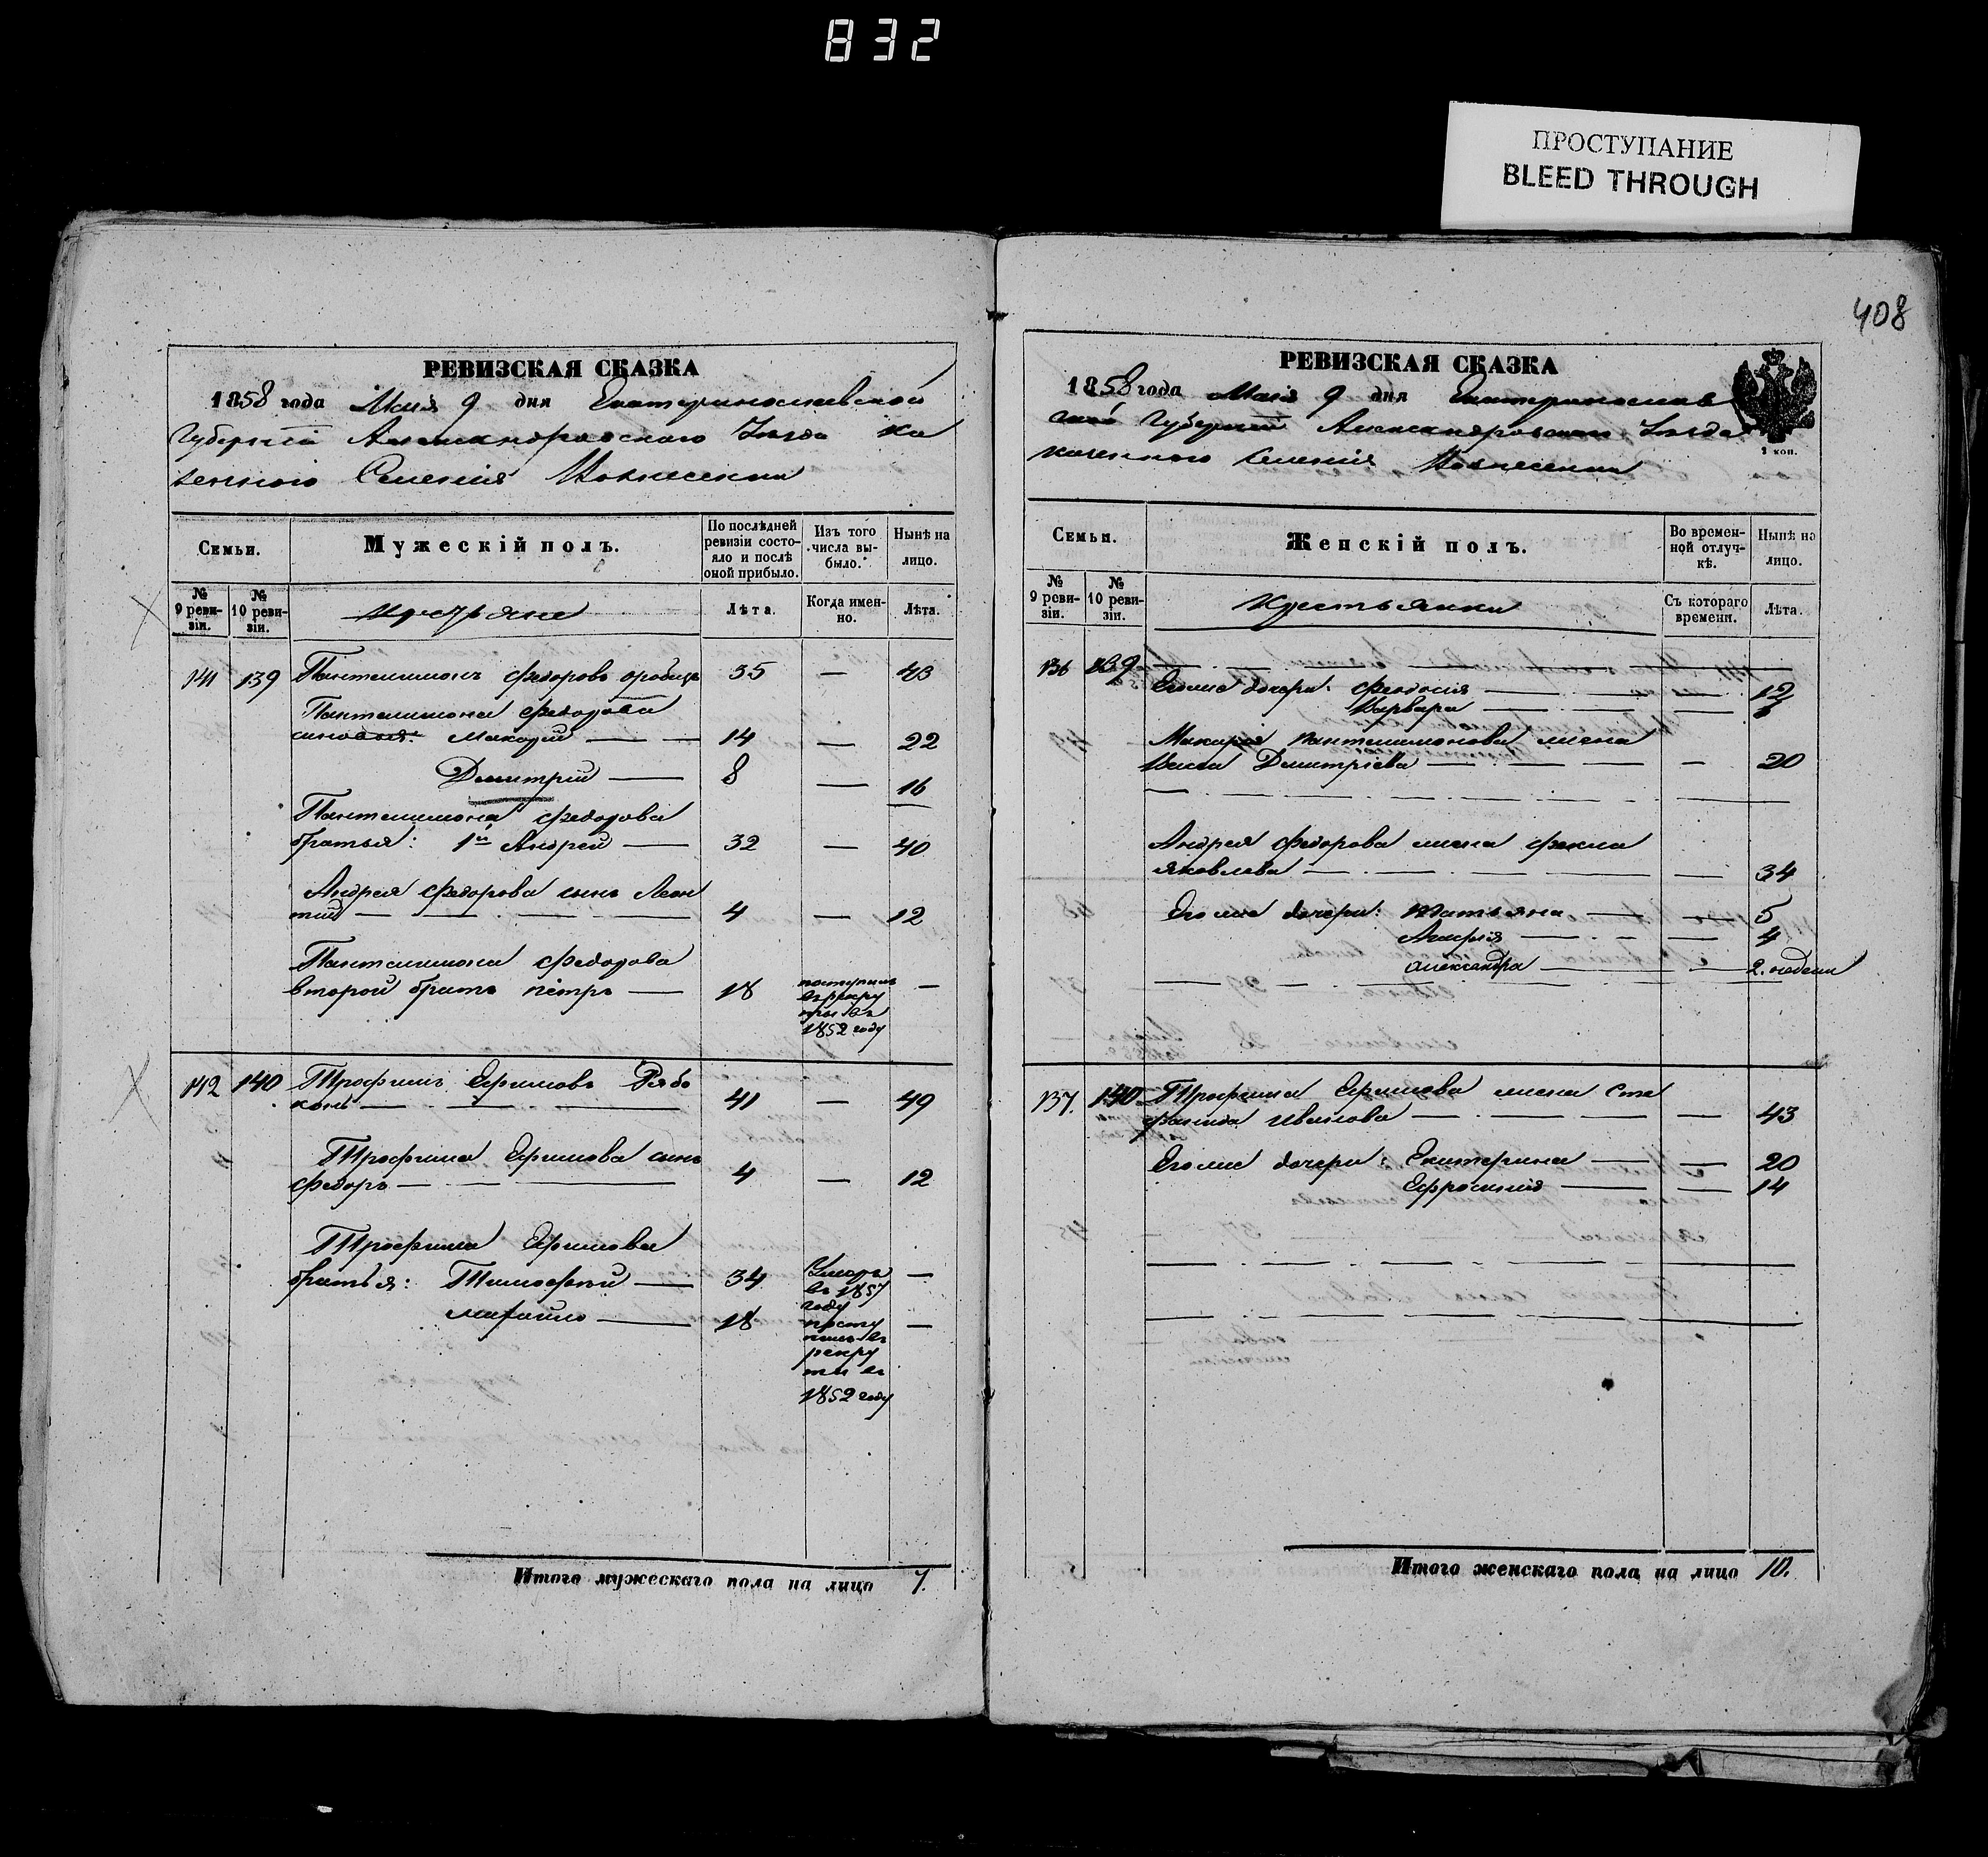 832
ПРОСТУПАНИЕ
BLEED THROUGH
408
РЕВИЗСКАЯ СКАЗКА
1858 года Маія 9 дня Екатеринославской
Губерніи Александровскаго Уѣзда Ка
зеннаго Селенія Вознесенки
Семьи.
Мужескій полъ.
По послѣдней ревизіи состояло и послѣ оной прибыло.
Изъ того числа выбыло.
Нынѣ на лицо.
№ 9 ревизіи.
№ 10 ревизіи.
Крестьяне
Лѣта.
Когда именно.
Лѣта.
141 139 Пантелимонъ Федоровъ 35 — 43
Пантелимона Федорова
сыновья: Макарій — 14 — 22
Дмитрій — 8 — 16
Пантелимона Федорова
братья: 1й Андрей — 32 — 40
Андрея Федорова сынъ Леон
тій — 4 — 12
Пантелимона Федорова
второй братъ Петръ — 18 поступилъ въ рекруты въ 1852 году —
142 140 Трофимъ Ефимовъ Рябо
конь — 41 — 49
Трофима Ефимова сынъ
Федоръ — 4 — 12
Трофима Ефимова
братья: Тимофѣй — 34 Умеръ въ 1857 году —
Михайло — 18 поступилъ въ рекруты въ 1852 году —
Итого мужескаго пола на лицо 7.
РЕВИЗСКАЯ СКАЗКА
1858 года Маія 9 дня Екатеринослав
ской Губерніи Александровскаго Уѣзда
казеннаго Селенія Вознесенки
2 коп.
Семьи.
Женскій полъ.
Во временной отлучкѣ.
Нынѣ на лицо.
№ 9 ревизіи.
№ 10 ревизіи.
Крестьянки
Съ котораго времени.
Лѣта.
136 139
Его же дочери: Феодосія — 12
Варвара —
Макарія Пантелимонова жена
Васса Дмитріева — — 20
Андрея Федорова жена Фекла
Яковлева — — 34
Его же дочери: Татьяна — — 5
Агафія — — 4
Александра — — 2. недели
137. 140 Трофима Ефимова жена Сте
фанида Иванова — — 43
Его же дочери: Екатерина — — 20
Ефросинія — — 14
Итого женскаго пола на лицо 10.